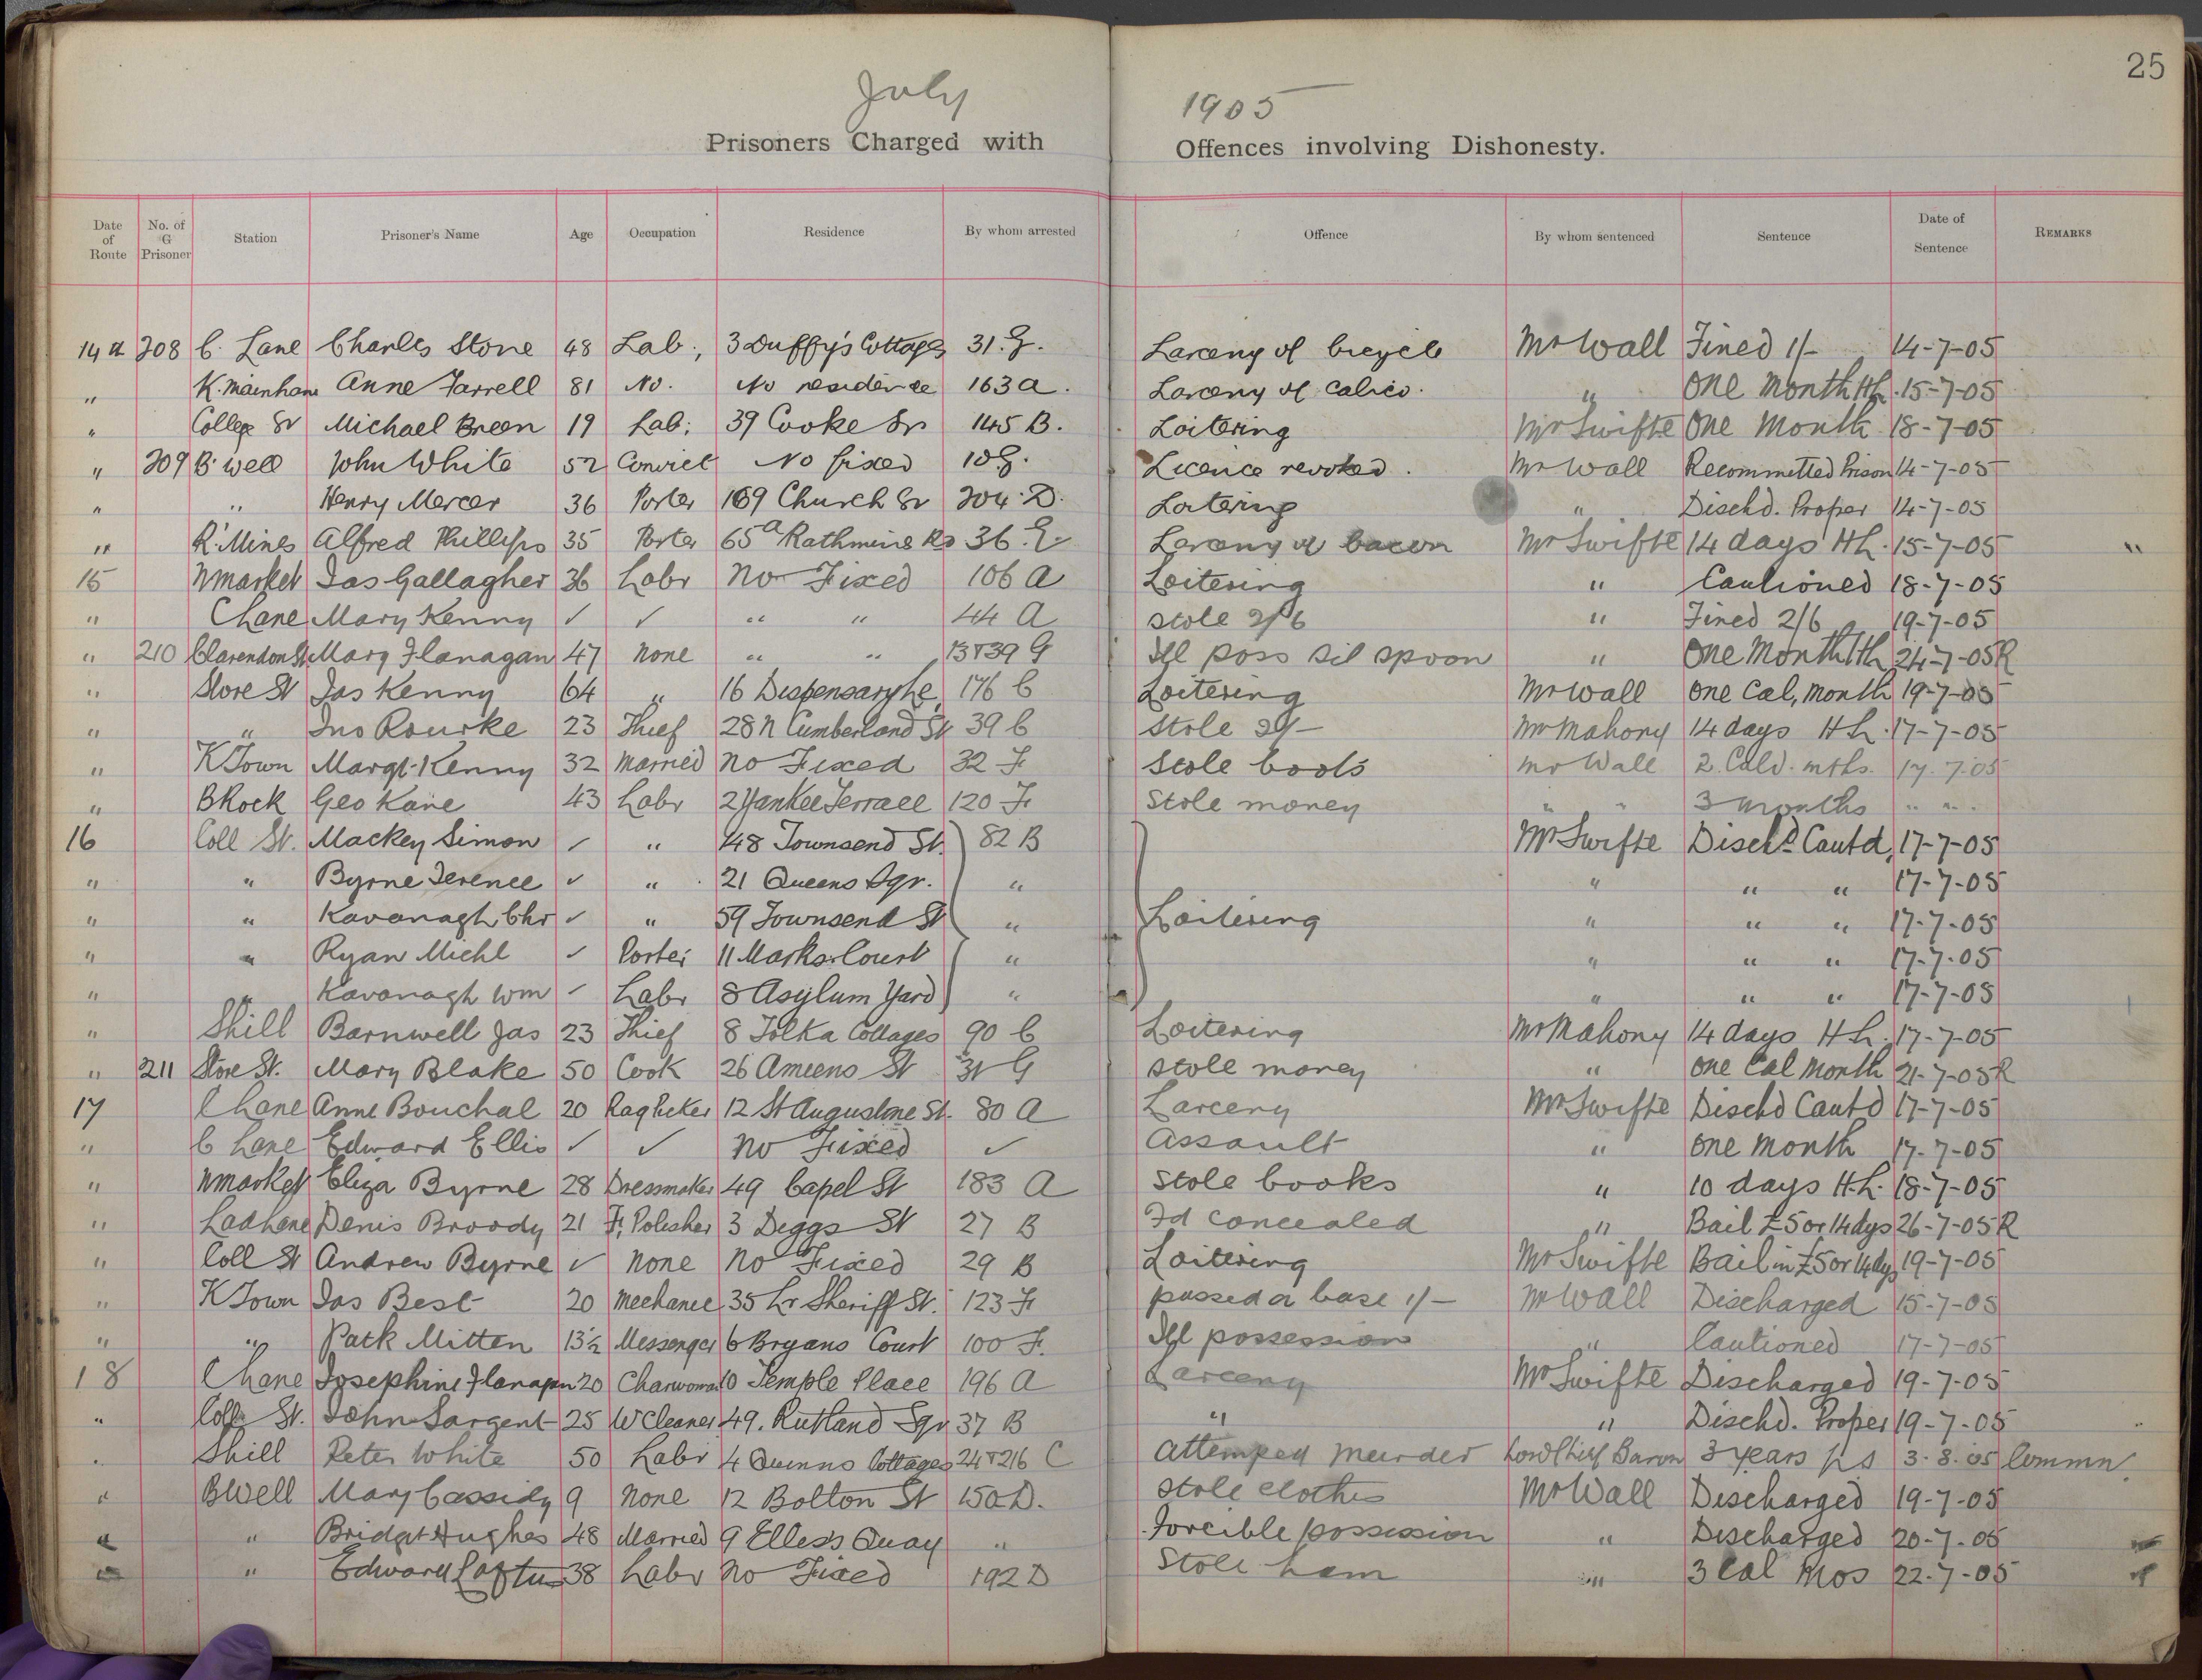 25
July 1905
Prisoners Charged with Offences involving Dishonesty.
Date of Route No. of G Prisoner Station Prisoner's Name Age Occupation Residence By whom arrested Offence By whom sentenced Sentence Date of Sentence REMARKS
14th 208 C. Lane Charles Stone 48 Lab., 3 Duffy's Cottages 31. G. Larceny of bicycle Mr Wall Fined 1/- 14-7-05
" K.mainham Anne Farrell 81 No. No residence 163 A. Larceny of calico. " One Month HL. 15-7-05
" College St Michael Breen 19 Lab; 39 Cooke St 145 B. Loitering Mr Swifte One Month 18-7-05
" 209 B.well John White 52 Convict No fixed 10 G. Licence revoked. Mr Wall Recommetted Prison 14-7-05
" " Henry Mercer 36 Porter 169 Church St 204. D. Loitering " Dischd. Proper 14-7-05
" R.Mines Alfred Phillips 35 Porter 65a Rathmine Rd 36. E. Larceny of bacon Mr Swifte 14 days HL. 15-7-05 "
15 Nmarket Jas Gallagher 36 Labr No Fixed 106 A Loitering " Cautioned 18-7-05
" C Lane Mary Kenny ✓ ✓ " " 44 A stole 2/6 " Fined 2/6 19-7-05
" 210 Clarendon St Mary Flanagan 47 None " " 13 & 39 G Ill poss sil spoon " One Month HL 24-7-05 R
" Store St Jas Kenny 64 " 16 Dispensary Le 176 C Loitering Mr Wall One Cal, Month 19-7-05
" " Jno Rourke 23 Thief 28 N Cumberland St 39 C Stole 2/- Mr Mahony 14 days HL. 17-7-05
" K Town Margt. Kenny 32 Married No Fixed 32 F Stole boots Mr Wall 2. Cald. mths. 17. 7.05
" B Rock Geo Kane 43 Labr 2 Yankee Terrace 120 F Stole money " " 3 months " " .
16 Coll St. Mackey Simon ✓ " 48 Townsend St. 82 B Mr Swifte Dischd. Cautd, 17-7-05
" " Byrne Terence ✓ " 21 Queens Sqr. " " " " 17-7-05
" " Kavanagh Chr ✓ " 59 Townsend St " Loitering " " " 17-7-05
" " Ryan Michl ✓ Porter 11 Marks Court " " " " 17-7-05
" " Kavanagh Wm ✓ Labr 8 Asylum Yard " " " " 17-7-05
" Shill Barnwell Jas 23 Thief 8 Tolka Cottages 90 C Loitering Mr Mahony 14 days HL. 17-7-05
" 211 Store St. Mary Blake 50 Cook 26 Amiens St 31 G Stole money " One Cal Month 21-7-05 R
17 C Lane Anne Bouchal 20 Rag Picker 12 St Augustine St. 80 A Larceny Mr Swifte Dischd Cautd 17-7-05
" C Lane Edward Ellis ✓ ✓ No Fixed ✓ Assault " One Month 17-7-05
" Nmarket Eliza Byrne 28 Dressmaker 49 Capel St 183 A Stole books " 10 days H.L. 18-7-05
" Lad Lane Denis Broody 21 F. Polisher 3 Diggs St 27 B Fd concealed " Bail £5 or 14 dys 26-7-05 R
" Coll St Andrew Byrne ✓ None No Fixed 29 B Loitering Mr Swifte Bail in £5 or 14 dys 19-7-05
" K Town Jas Best 20 Mechanic 35 Lr Sheriff St. 123 F passed a base 1/- Mr Wall Discharged 15-7-05
" " Patk Mitten 13½ Messenger 6 Bryans Court 100 F. Ill possession " Cautioned 17-7-05
18 C Lane Josephine Flanagan 20 Charwoman 10 Temple Place 196 A Larceny Mr Swifte Discharged 19-7-05
" Coll St. John Sargent 25 W Cleaner 49. Rutland Sqr 37 B " " Dischd. Proper 19-7-05
. Shill Peter White 50 Labr 4 Quinns Cottages 24 & 216 C Attempted Murder Lord Chief Baron 3 years ps 3. 8. 05 Commn.
" BWell Mary Cassidy 9 None 12 Bolton St 150 D. Stole clothes Mr Wall Discharged 19-7-05
" " Bridget Hughes 48 Married 9 Elless Quay " Forcible possession " Discharged 20-7-05
" " Edward Loftus 38 Labr No Fixed 192 D Stole ham " 3 Cal Mos 22-7-05